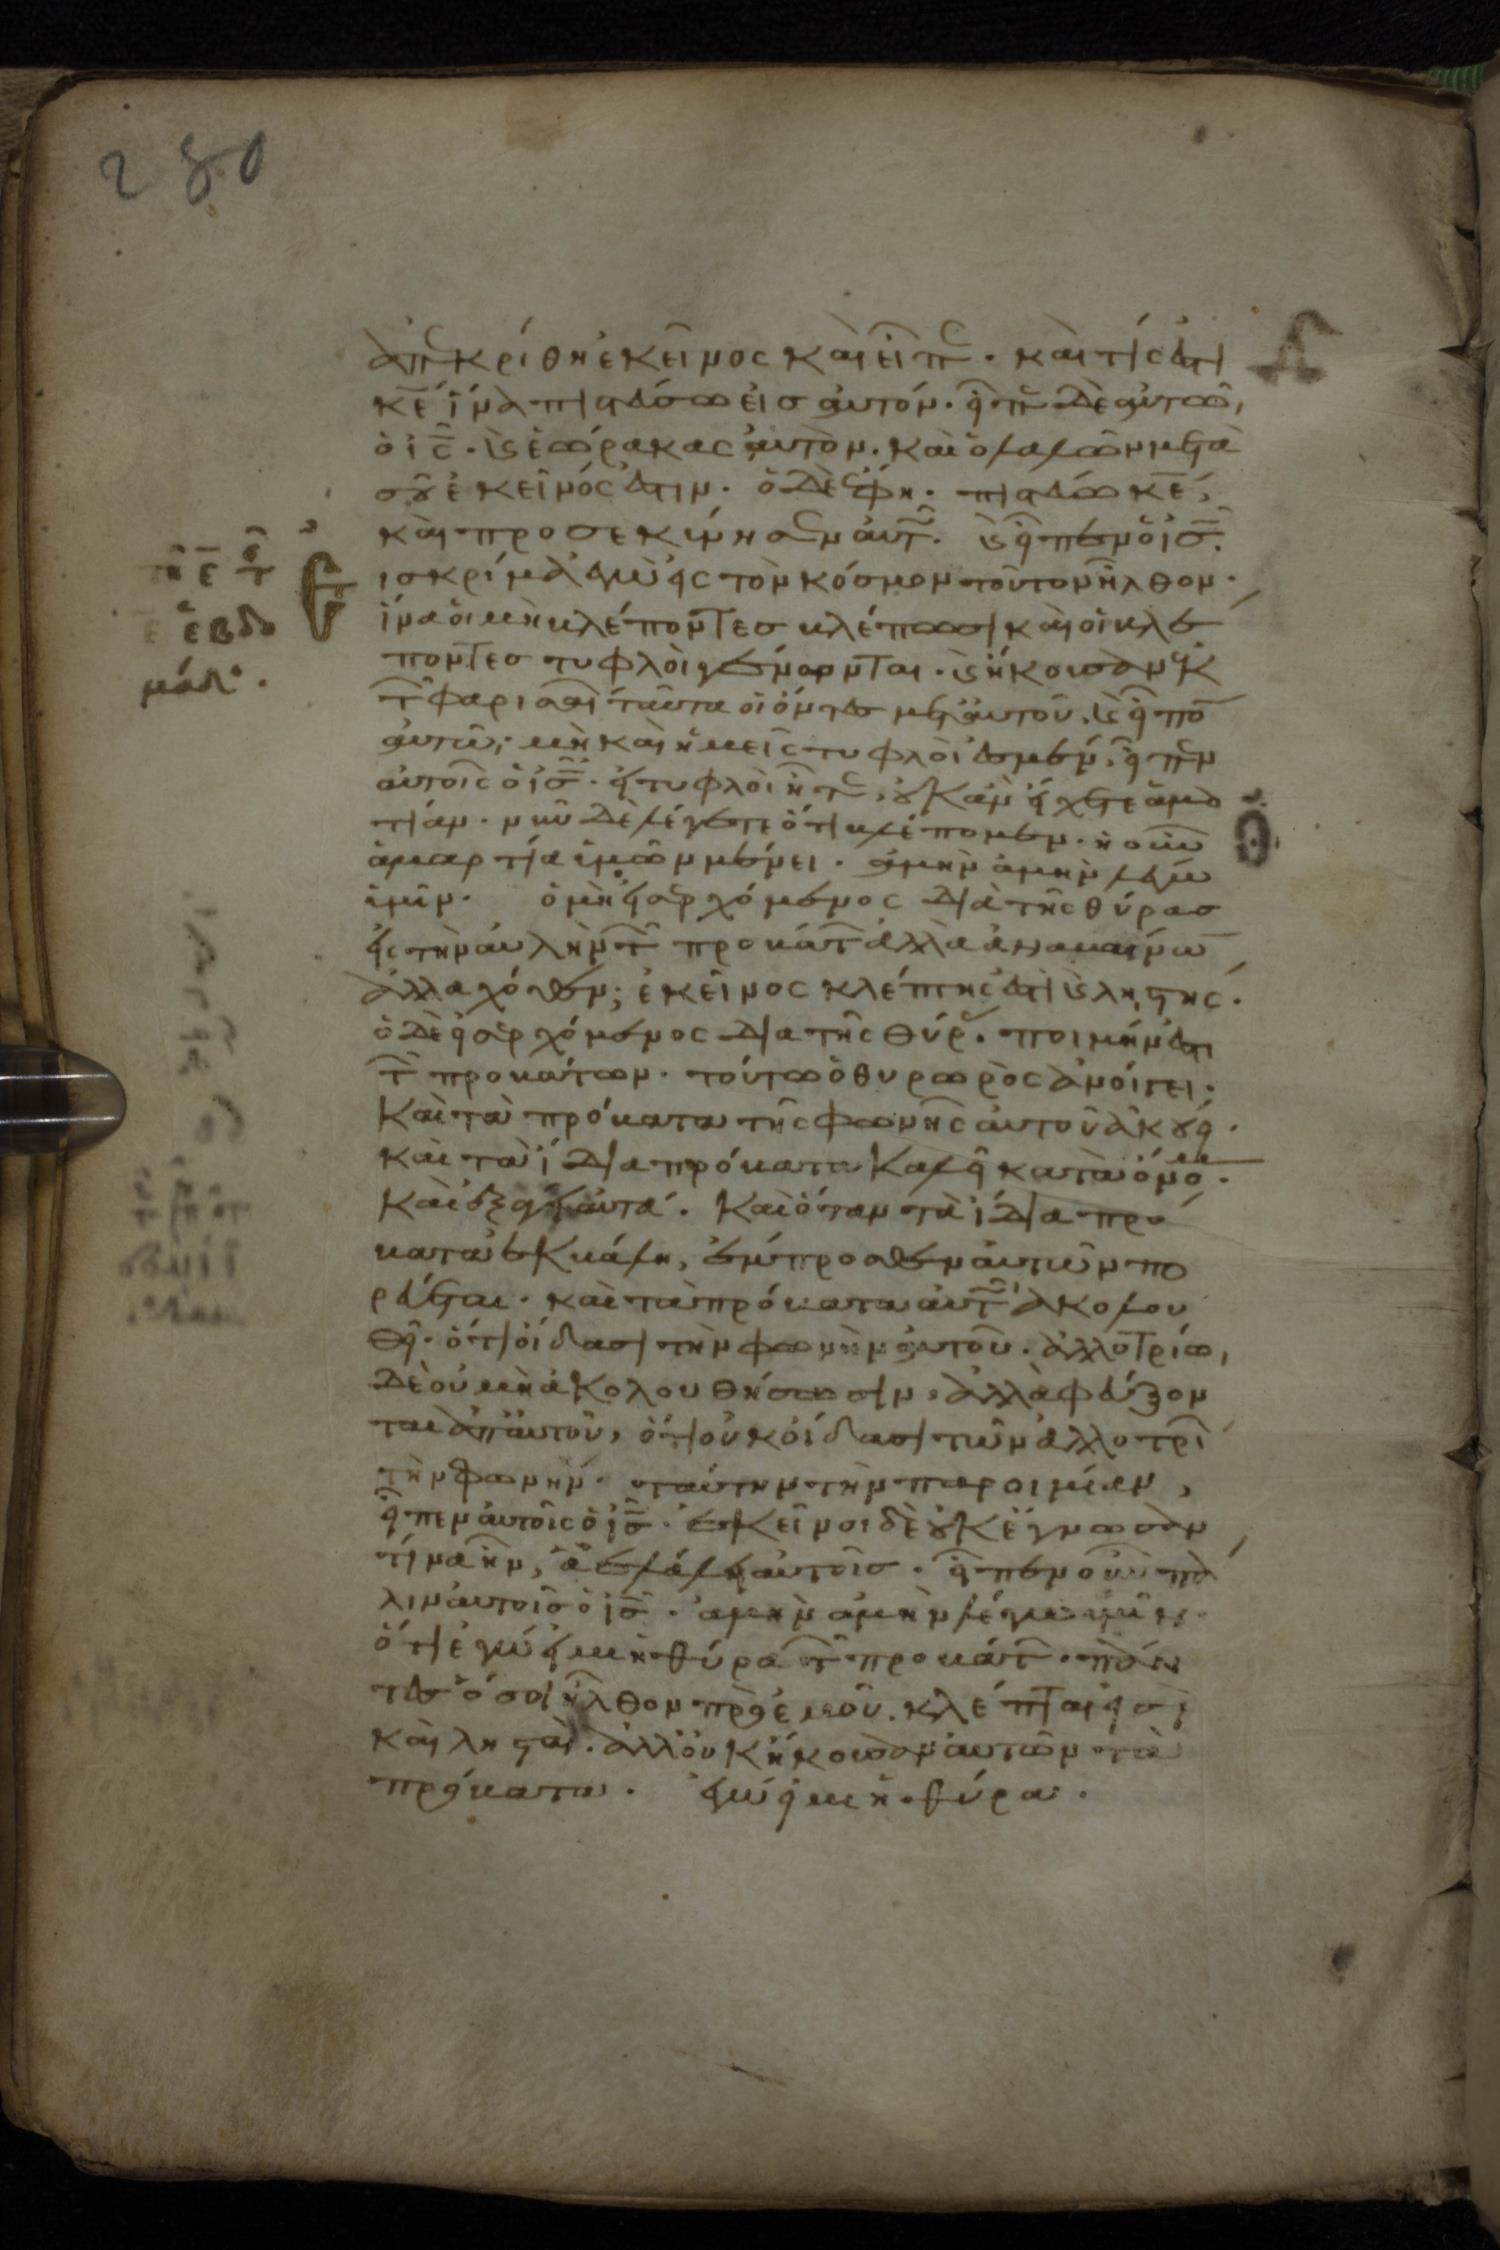 280
ἀπεκρίθη ἐκεῖνος καὶ εἶπε. καὶ τίς ἐστι
κε̅ ἵνα πιστεύσω εἰς αὐτόν. εἶπε δὲ αὐτῶ,
ὁ ις̅. καὶ ἑώρακας αὐτὸν. καὶ ὁ λαλῶν μετὰ
σοῦ ἐκεῖνός ἐστιν. ὁ δὲ ἔφη. πιστεύω κε̅,
καὶ προσεκύνησεν αὐτῶ. καὶ εἶπεν ὁ ις̅.
εἰς κρίμα ἐγὼ εἰς τὸν κόσμον τοῦτον ἦλθον.
ἵνα οἱ μὴ βλέποντες βλέπωσι καὶ οἱ βλέ
ποντες τυφλοὶ γένωνται. καὶ ἤκουσαν ἐκ
τῶν φαρισαίων ταῦτα οἱ ὄντες μετ αὐτοῦ. καὶ εἶπον
αὐτῶ, μὴ καὶ ἡμεῖς τυφλοί ἐσμεν. εἶπεν
αὐτοῖς ὁ ις̅. εἰ τυφλοὶ ἦτε, οὐκ ἂν εἴχετε ἁμαρ
τίαν. νῦν δὲ λέγετε ὅτι βλέπομεν. ἡ οὖν
ἁμαρτία ὑμῶν μένει. ἀμὴν ἀμὴν λέγω
ὑμῖν. ὁ μὴ εἰσερχόμενος διὰ τῆς θύρας
εἰς τὴν αὐλὴν τῶν προβάτων ἀλλὰ ἀναβαίνων
ἀλλαχόθεν, ἐκεῖνος κλέπτης ἐστὶ καὶ ληστής.
ὁ δὲ εἰσερχόμενος διὰ τῆς θύρας. ποιμήν ἐστι
τῶν προβάτων. τούτω ὁ θυρωρὸς ἀνοίγει.
καὶ τὰ πρόβατα τῆς φωνῆς αὐτοῦ ἀκούει.
καὶ τὰ ἴδια πρόβατα καλεῖ κατὰ ὄνομα.
καὶ ἐξάγει αὐτά. καὶ ὅταν τὰ ἴδια πρό
βατα ἐκβάλη, ἔμπροσθεν αὐτῶν πο
ρεύεται. καὶ τὰ πρόβατα αὐτῶ ἀκολου
θεῖ. ὅτι οἴδασι τὴν φωνὴν αὐτοῦ. ἀλλοτρίω,
δὲ οὐ μὴ ἀκολουθήσωσιν, ἀλλὰ φεύξον
ται ἀπ αὐτοῦ, ὅτι οὐκ οἴδασι τῶν ἀλλοτρί
τὴν φωνήν. ταύτην τὴν παροιμίαν,
εἶπεν αὐτοῖς ὁ ις̅. ἐκεῖνοι δὲ οὐκ ἔγνωσαν
τίνα ἦν, ἃ ἐλάλει αὐτοῖς. εἶπεν οὖν πά
λιν αὐτοῖς ὁ ις̅. ἀμὴν ἀμὴν λέγω ὑμῖν.
ὅτι ἐγώ εἰμι ἡ θύρα τῶν προβάτων. πάν
τες ὅσοι ἦλθον πρὸ ἐμοῦ. κλέπται εἰσὶ
καὶ λησταί. ἀλλ οὐκ ἤκουσαν αὐτῶν τὰ
πρόβατα. ἐγώ εἰμι ἡ θύρα.
τῆ ε̅ τ
ε̅ ἑβδο
μάδ.